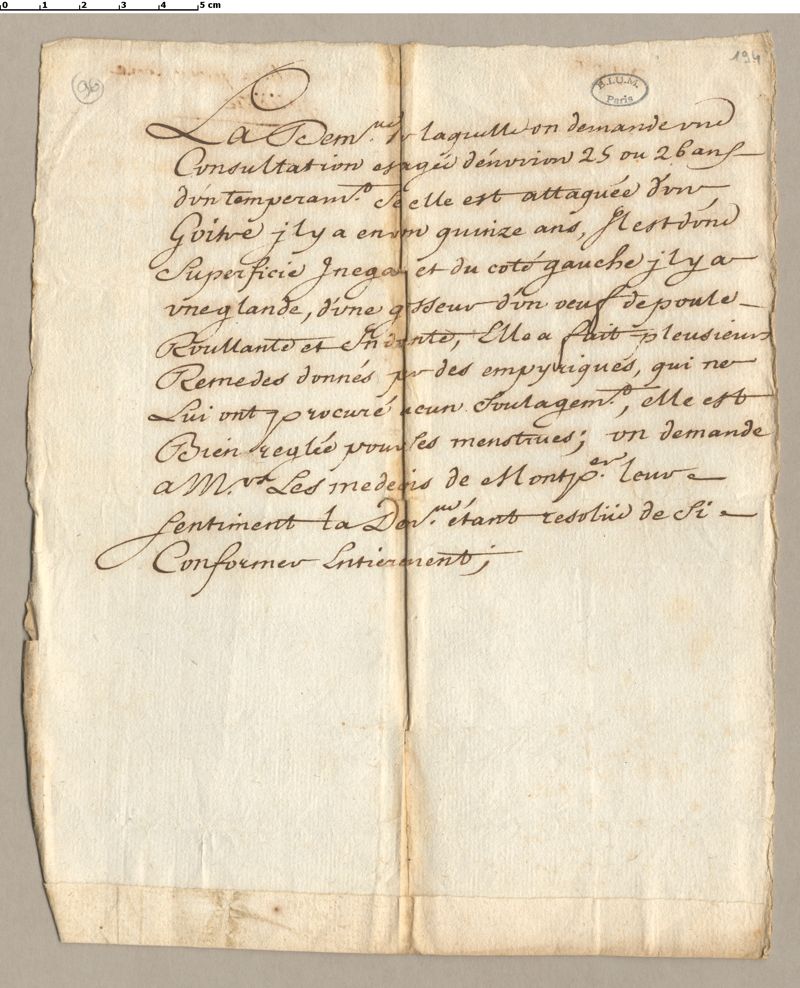 0 1 2 3 4 5 cm
96
194
B.I.U.M.
Paris
La Dem.lle pr laquelle on demande une
Consultation est agée d'environ 25 ou 26 ans
d'un temperam.t Sec elle est attaquée d'un
Goitre j l y a environ quinze ans, Il est d'une
Superficie Inegale et du coté gauche j l y a
une glande, d'une grosseur d'un oeuf de poule
Roullante et Indolente, Elle a fait pleusieurs
Remedes donnés par des empyriques, qui ne
Lui ont procuré aucun Soulagem.t, elle est
Bien reglée pour Ses menstrues; on demande
a M.rs Les medecins de Montp.er leur
sentiment la De.lle étant resoluë de Si
Conformer Entierement;